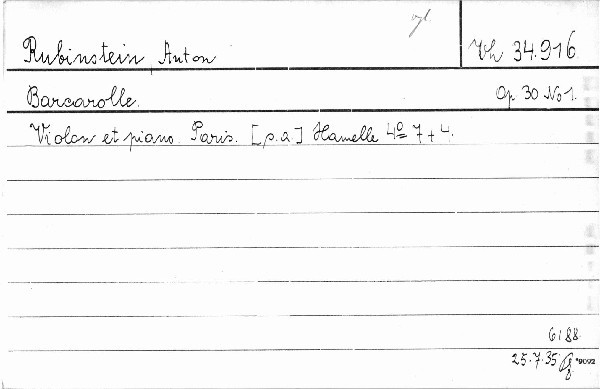 Rubinstein, Anton
Vh 34.916
Barcarolle.
Op. 30 No 1.
Violon et piano. Paris. [s.a.] Hamelle 4º 7+4.
6188.
25.7.35
*9092